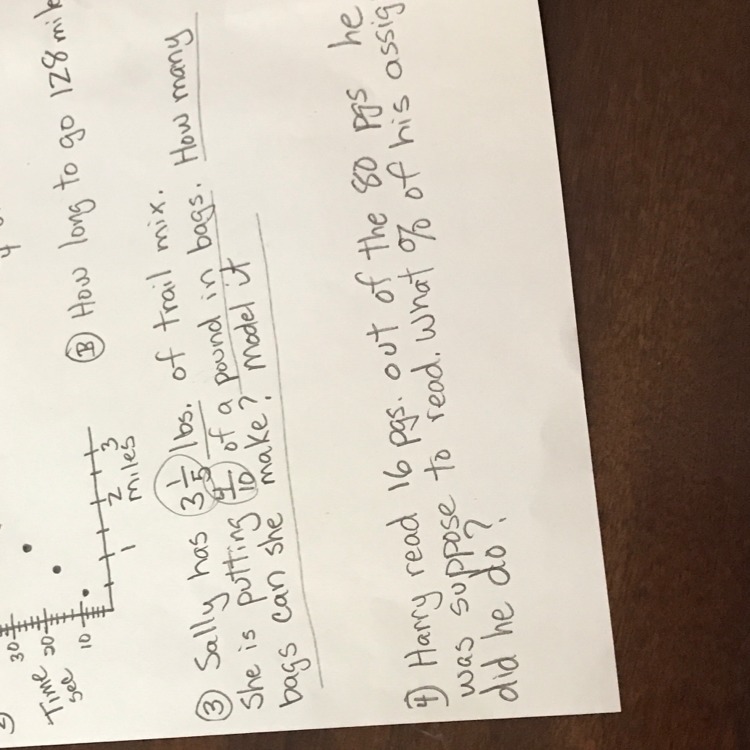 4
5)
30
20
10
Time
sec
1 2 3
miles
(B) How long to go 128 mil
(3) Sally has 3 1/5 lbs. of trail mix.
She is putting 4/10 of a pound in bags. How many
bags can she make? model it
(4) Harry read 16 pgs. out of the 80 pgs he
was suppose to read. What % of his assig
did he do?